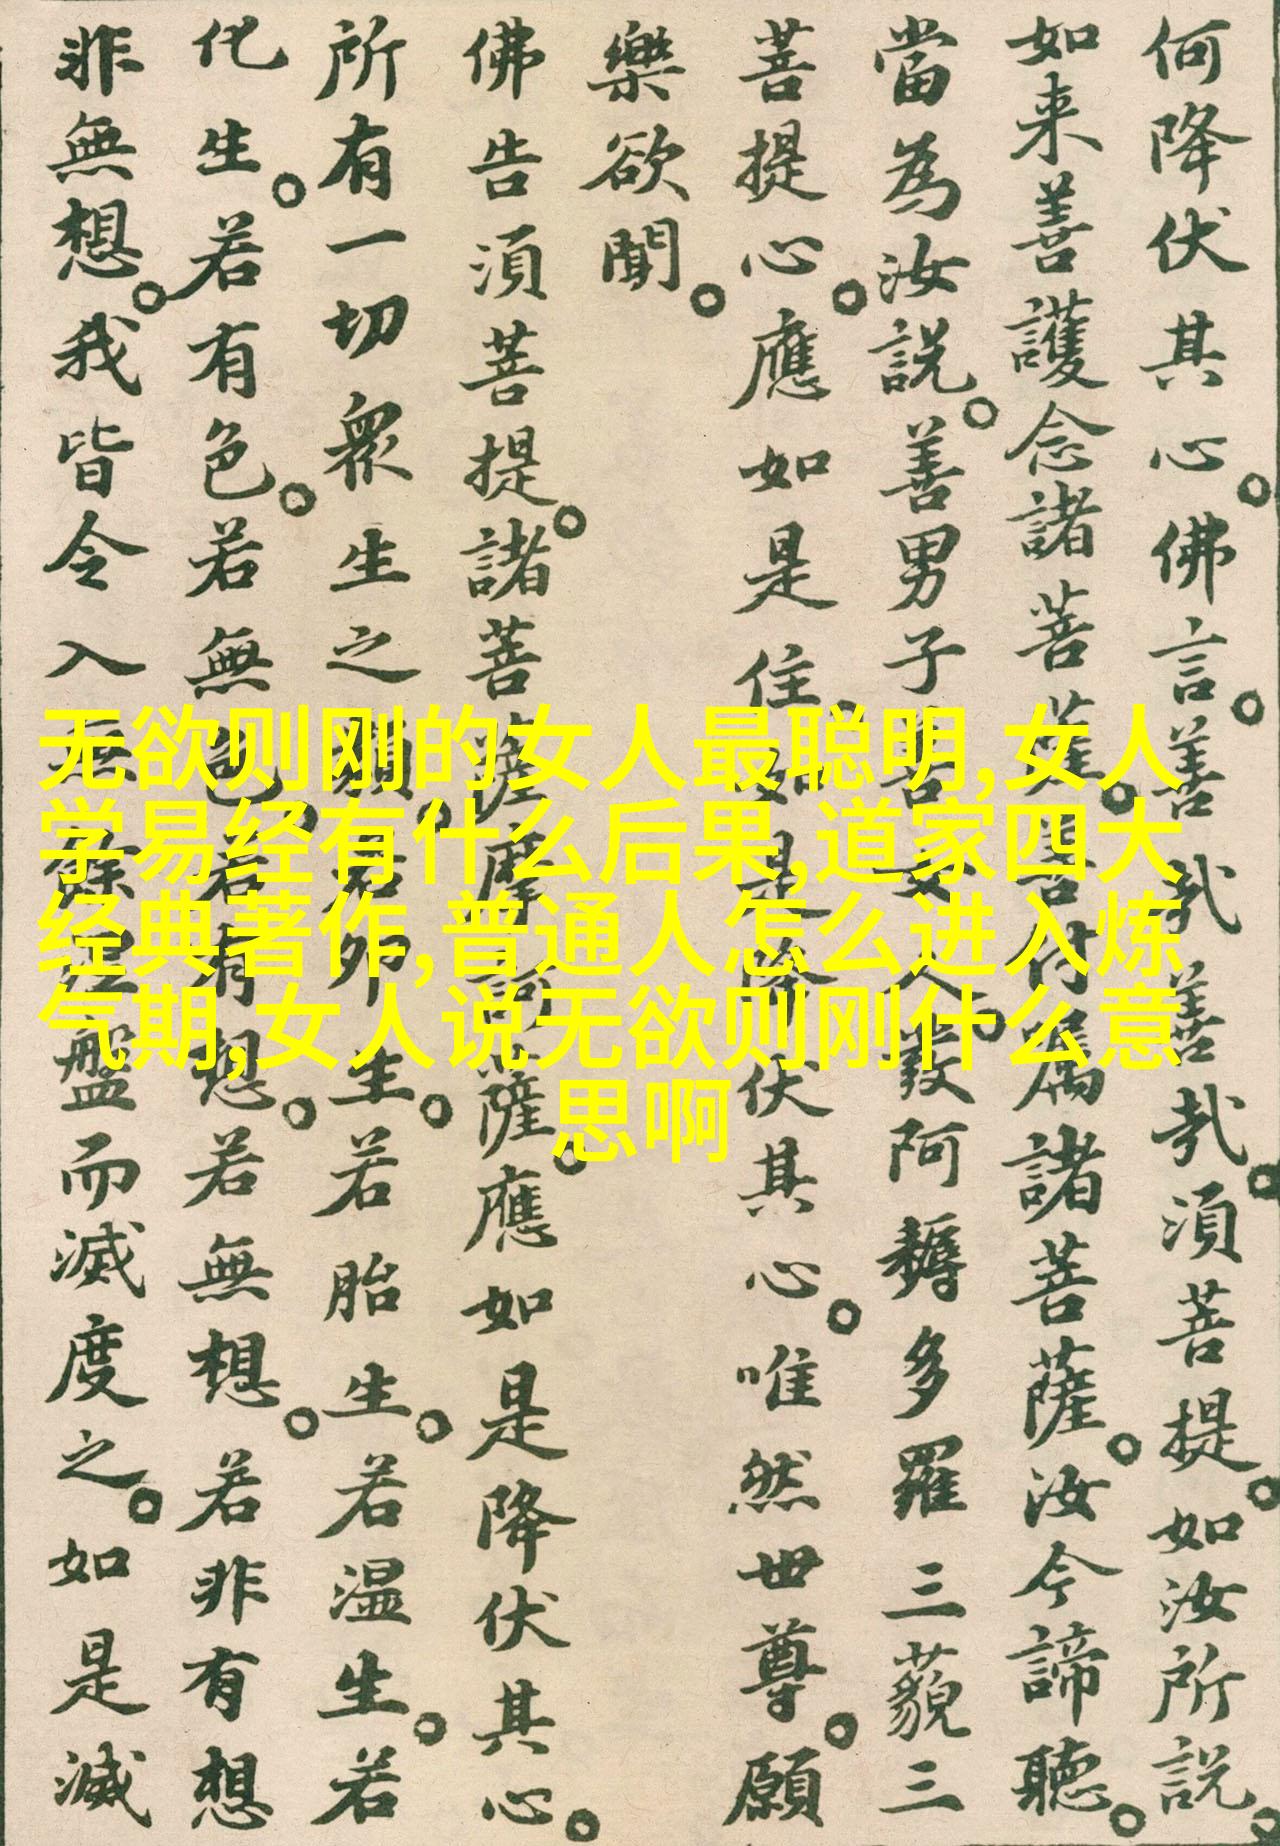 何降伏其心佛言善哉善哉須菩提如汝所説
如来善護念諸菩薩善付属諸菩薩汝今諦聽
當為汝説善男子善女人發阿耨多羅三藐三
菩提心應如是住如是降伏其心唯然世尊願
樂欲聞
佛告須菩提諸菩薩摩訶薩應如是降伏其心
所有一切衆生之類若卵生若胎生若温生若
化生若有色若無色若有想若無想若非有想
非無想我皆令入無餘涅盤而滅度之如是滅
无欲则刚的女人最聪明,女人
学易经有什么后果,道家四大
经典著作,普通人怎么进入炼
气期,女人说无欲则刚什么意
思啊